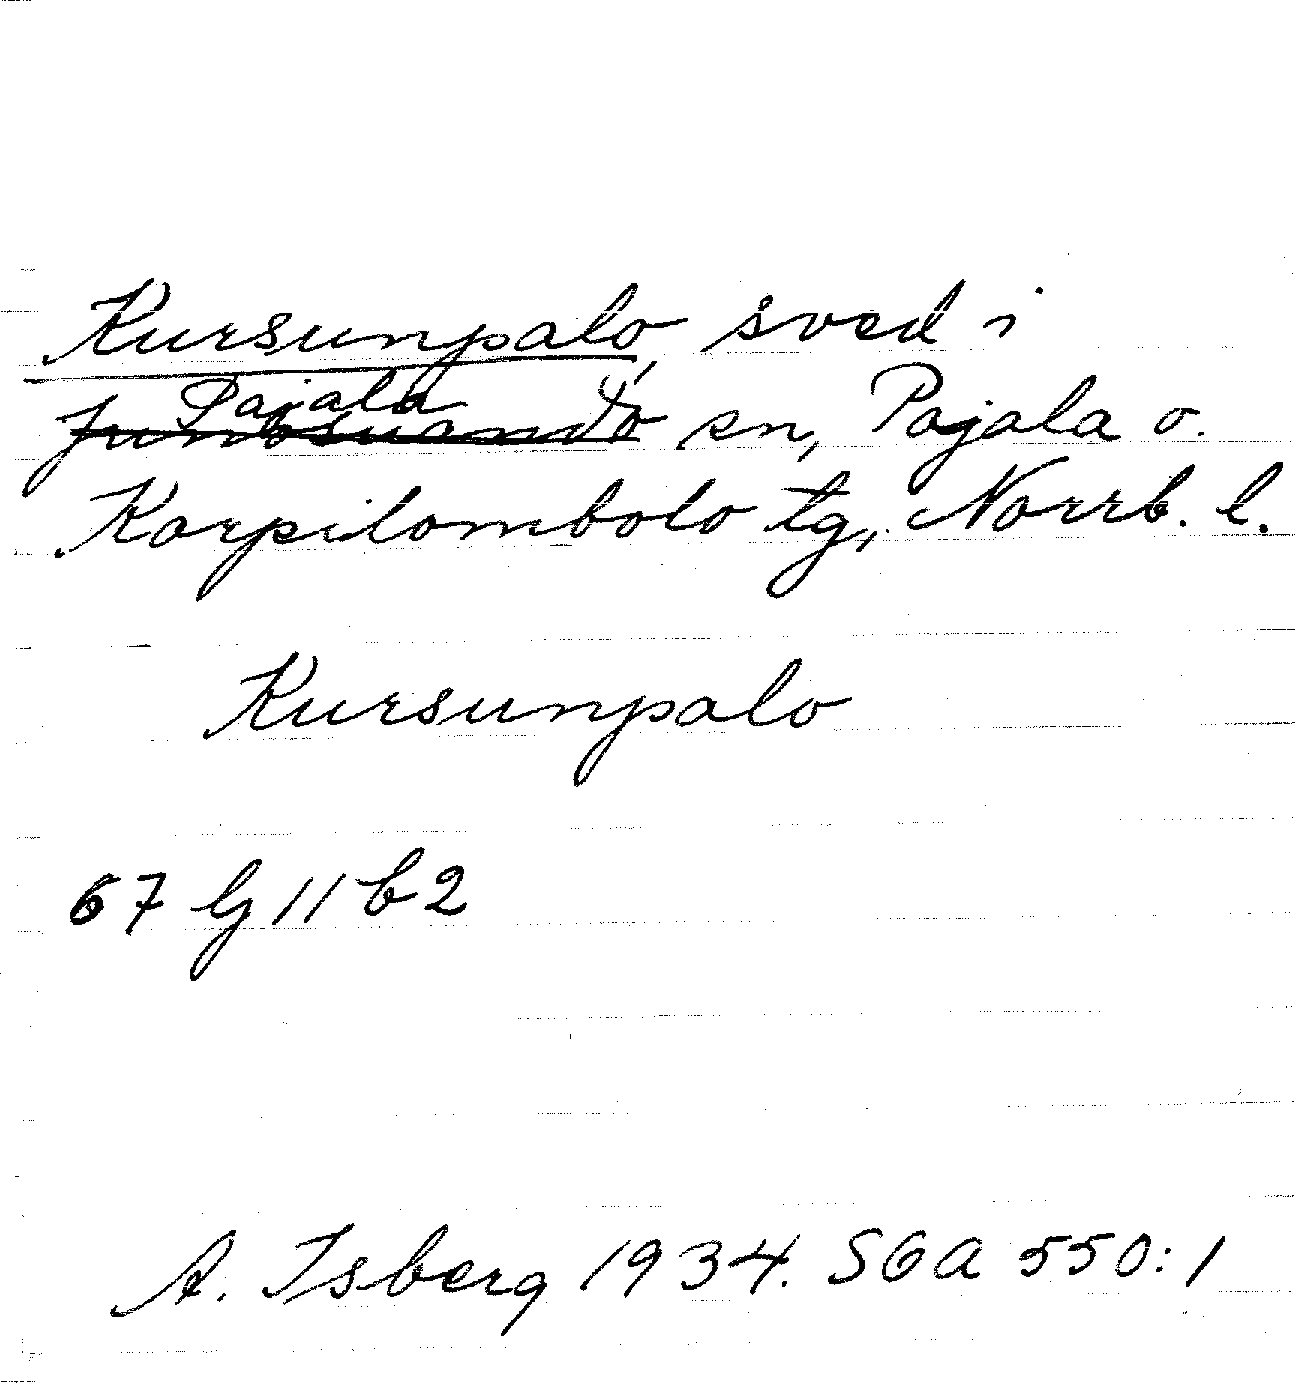 Kursunpalo, sved i
Pajala
Junosuando sn, Pajala o.
Korpilombolo tg, Norrb. l.
Kursunpalo
67 G 11 b 2
A. Isberg 1934. SGA 550:1